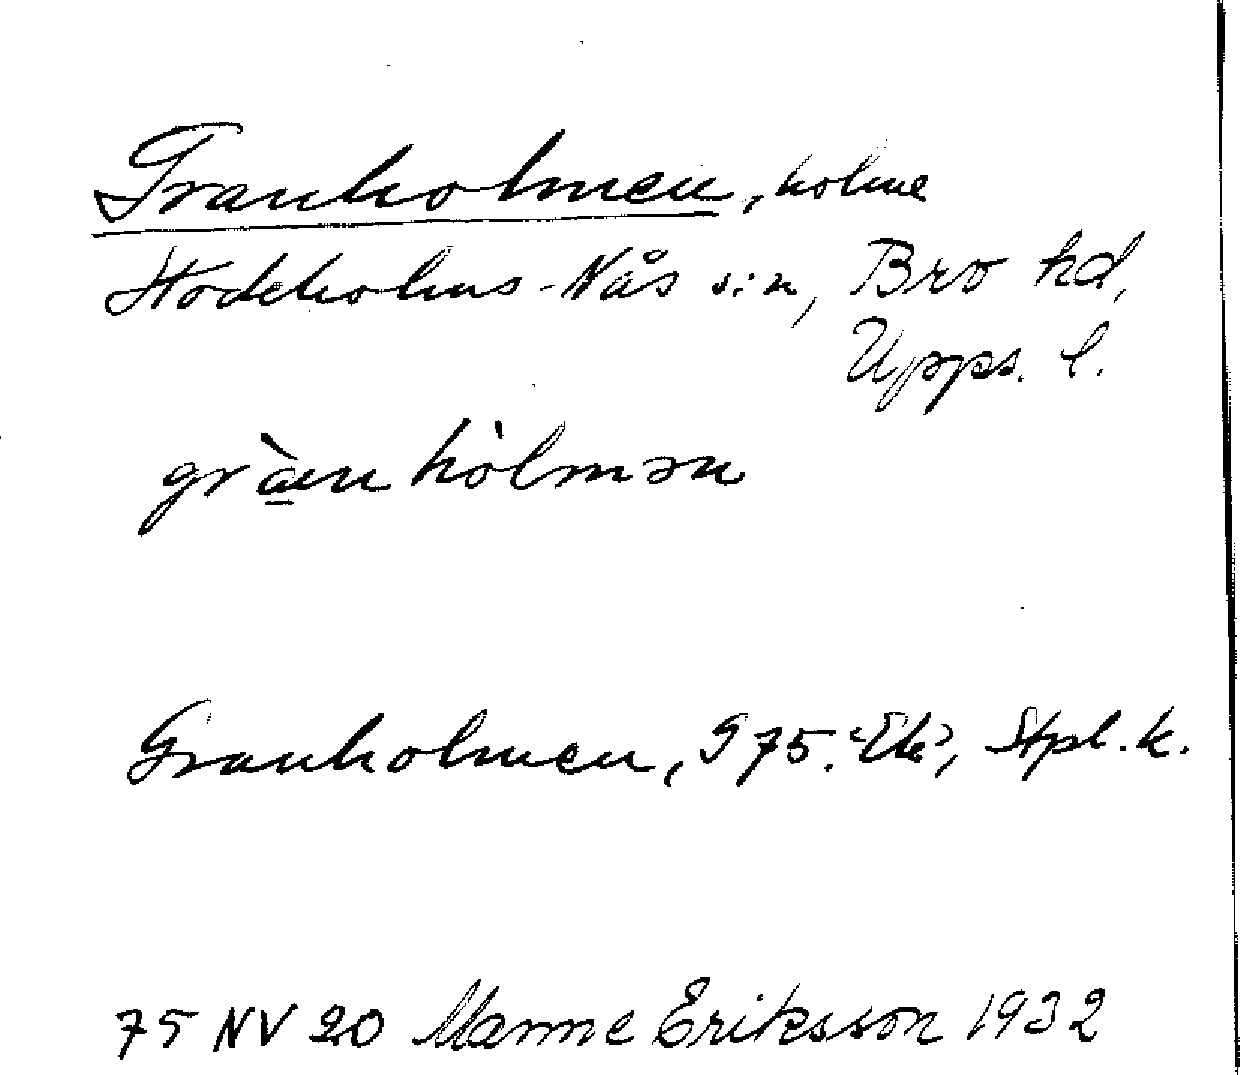 Granholmen, holme
Stockholms-Näs s:n, Bro hd,
Upps. l.
gràn hòlmən
Granholmen, G 75. "Ek", Stpl. k.
75 NV 20 Manne Eriksson 1932